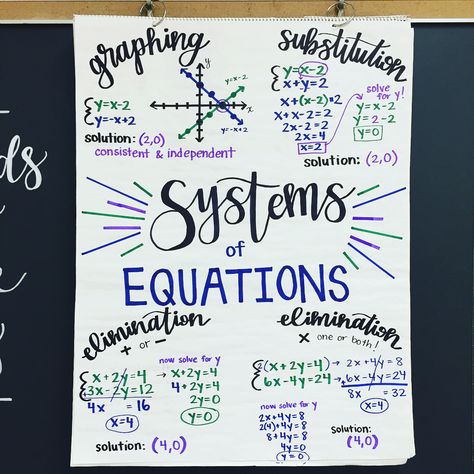 graphing
y
x
y=x-2
y=-x+2
y=x-2
y=-x+2
solution: (2,0)
consistent & independent
substitution
y=x-2
x+y=2
x+(x-2)=2
x+x-2=2
2x-2=2
2x=4
x=2
solve
for y!
y=x-2
y=2-2
y=0
solution: (2,0)
Systems
of
EQUATIONS
elimination
+ or -
x+2y=4
3x-2y=12
4x = 16
x=4
now solve for y
x+2y=4
4+2y=4
2y=0
y=0
solution: (4,0)
elimination
x one or both!
2(x+2y=4)
6x-4y=24
2x+4y=8
+6x-4y=24
8x = 32
x=4
now solve for y
2x+4y=8
2(4)+4y=8
8+4y=8
4y=0
y=0
solution:
(4,0)
ds